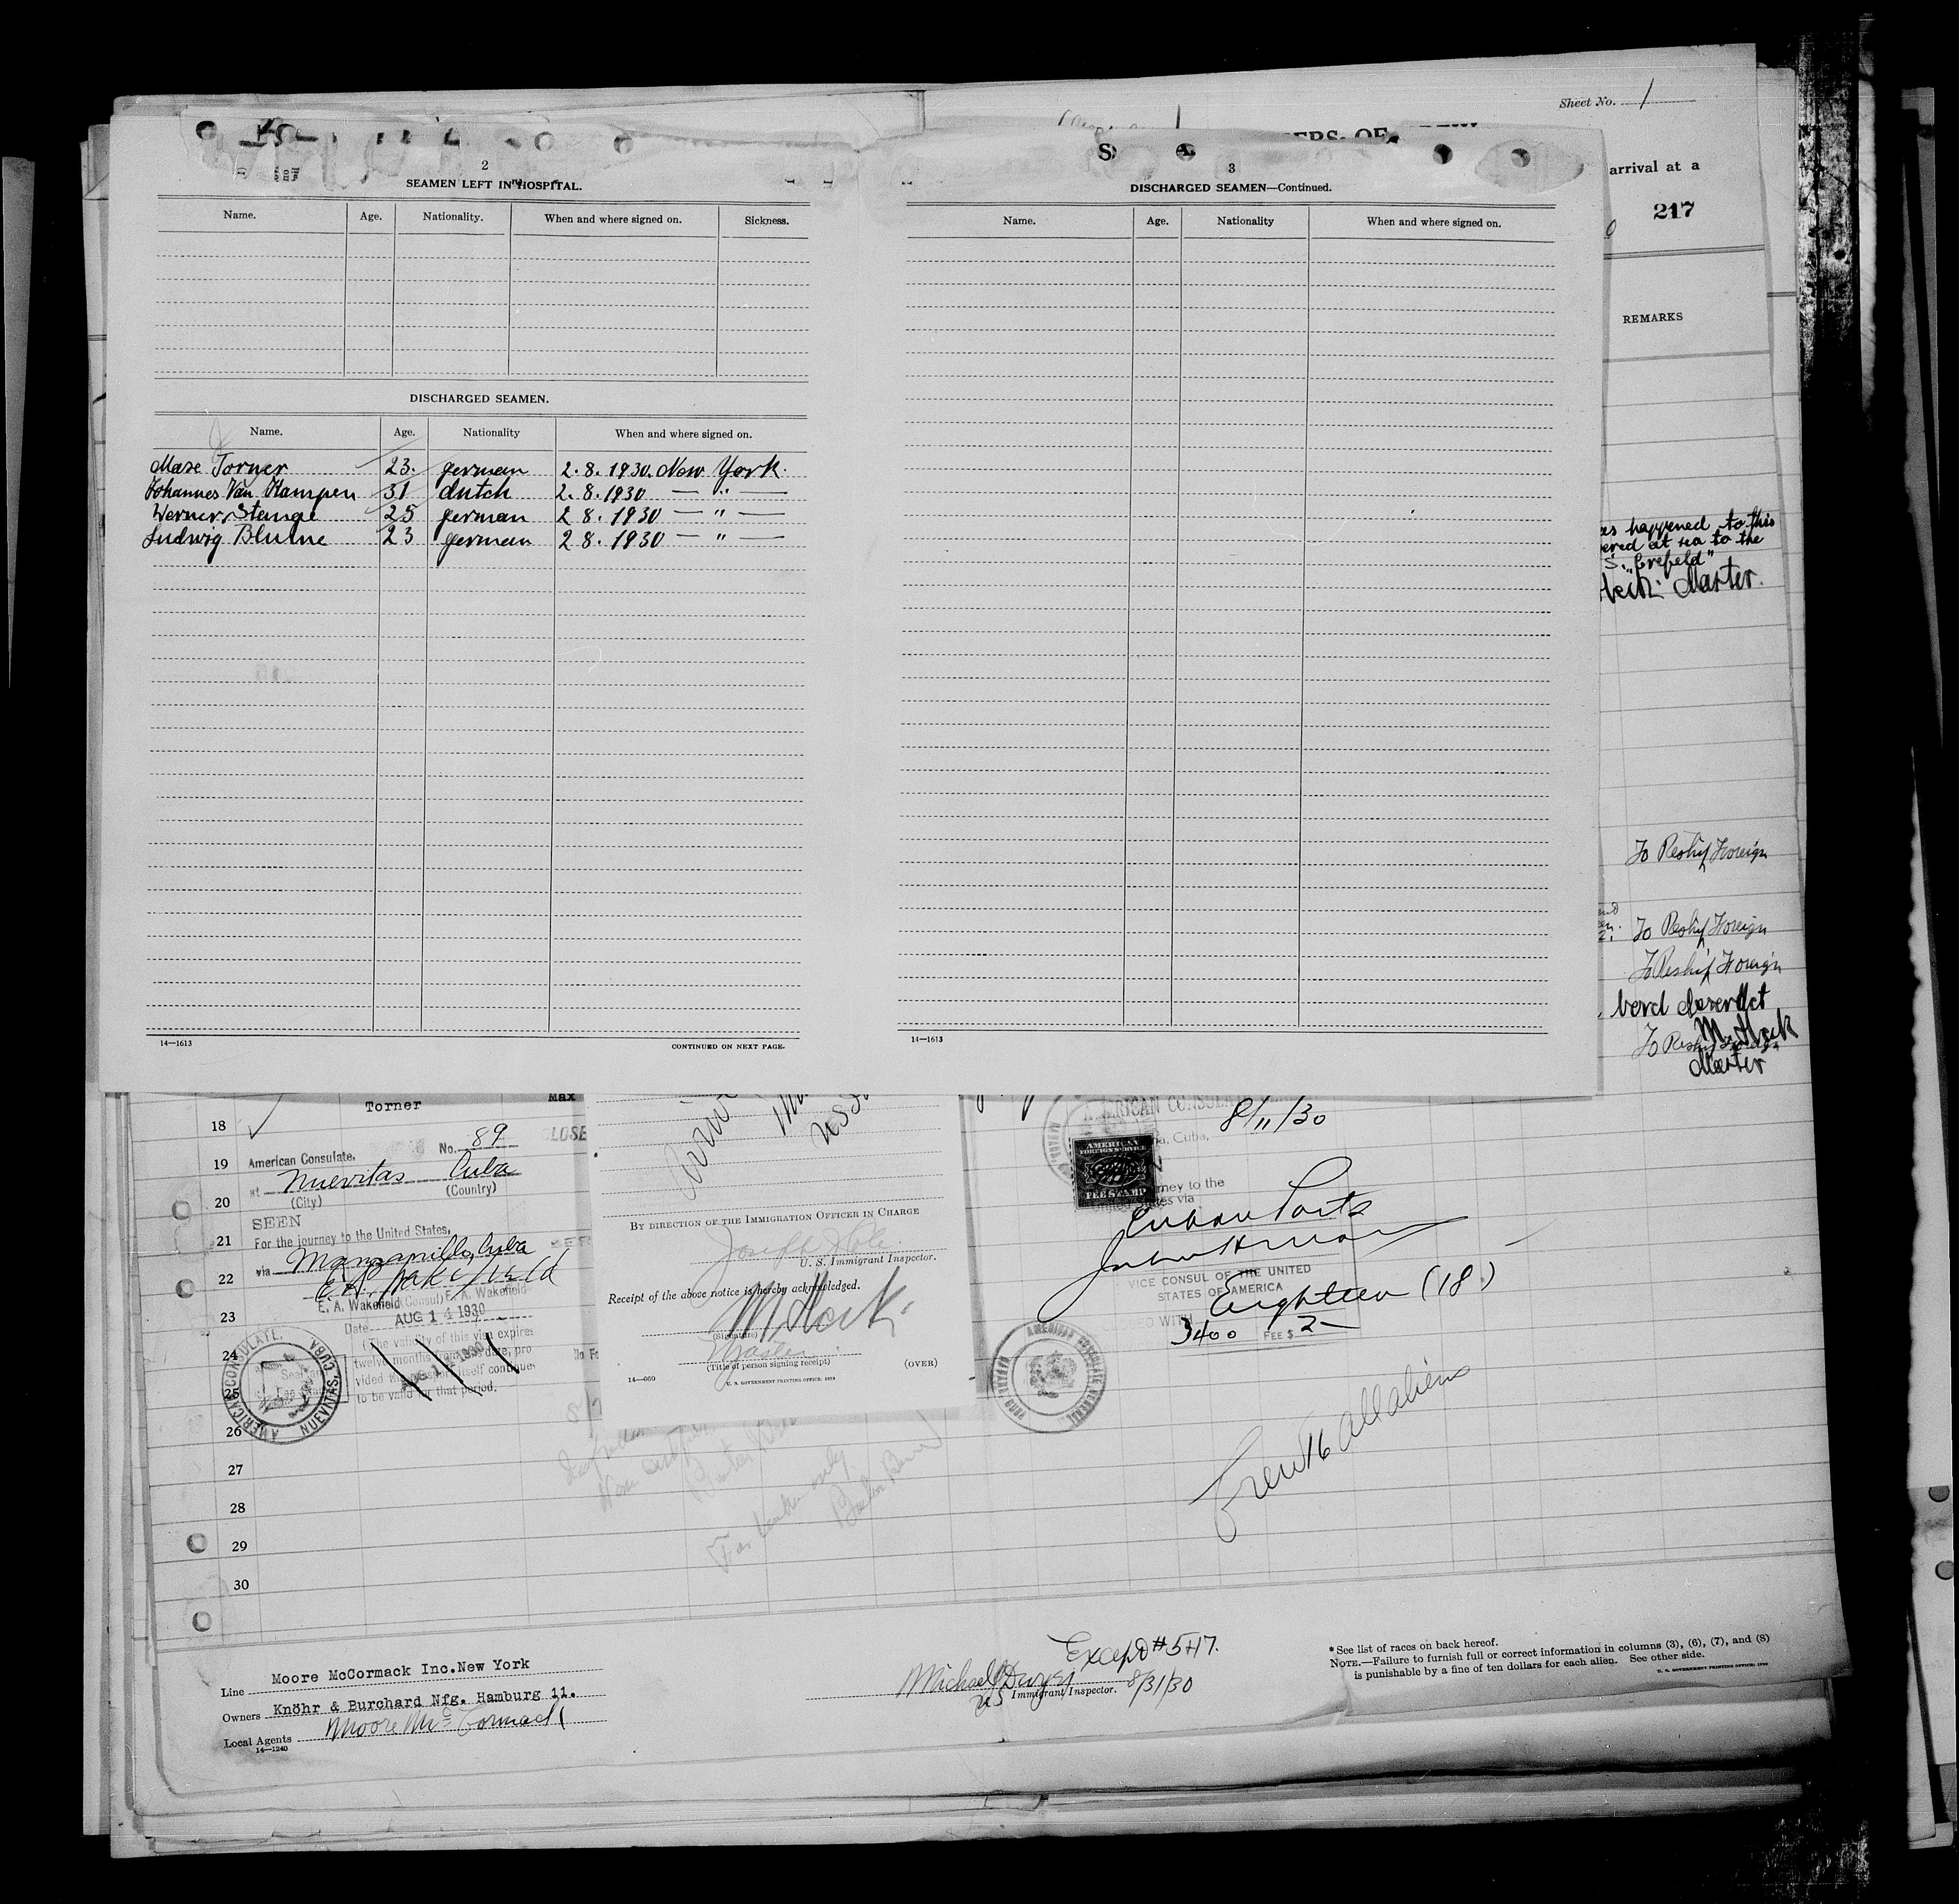 Sheet No. 1
arrival at a
217
REMARKS
2
SEAMEN LEFT IN HOSPITAL.
Name. Age. Nationality. When and where signed on. Sickness.
DISCHARGED SEAMEN.
Name. Age. Nationality When and where signed on.
Max Torner 23. german 2.8.1930. New York.
Johannes Van Kampen 31 dutch 2.8.1930 — " —
Werner Stange 25 german 2 8.1930 — " —
Ludwig Blume 23 german 2 8.1930 — " —
14—1613
CONTINUED ON NEXT PAGE.
3
DISCHARGED SEAMEN—Continued.
Name. Age. Nationality When and where signed on.
14—1613
happened to this
at sea to the
S. "Crefeld"
Master.
To Reship Foreign
To Reship Foreign
To Reship Foreign
M. Hock
To Reship
Master
Torner Max
18
19
20
21
22
23
24
25
26
27
28
29
30
No. 89
American Consulate,
at Nuevitas Cuba
(City) (Country)
SEEN
For the journey to the United States,
via Manzanillo, Cuba
E. A. Wakefield
E. A. Wakefield (Consul) E. A. Wakefield
Date AUG 14 1930
(The validity of this visa expires
twelve months from this date, pro
vided the passport itself continues
to be valid for that period.
AMERICAN CONSULATE, NUEVITAS, CUBA
BY DIRECTION OF THE IMMIGRATION OFFICER IN CHARGE
Joseph
U. S. Immigrant Inspector.
Receipt of the above notice is hereby acknowledged.
M. Hock
(Signature)
Master
(Title of person signing receipt)
(OVER)
14—660
U. S. GOVERNMENT PRINTING OFFICE: 1929
AMERICAN CONSULA
8/11/30
Cuba,
AMERICAN
FOREIGN SERVICE
FEE STAMP
journey to the
United States via
Cuban Ports
VICE CONSUL OF THE UNITED
STATES OF AMERICA
Eighteen (18)
3400 FEE $ 2—
AMERICAN CONSULATE GENERAL
Crew 16 all aliens
Line Moore McCormack Inc.New York
Owners Knöhr & Burchard Nfg. Hamburg 11.
Local Agents Moore McCormack
14—1240
Except #5+17.
Michael J Dwyer
US Immigrant Inspector. 8/31/30
*See list of races on back hereof.
NOTE.—Failure to furnish full or correct information in columns (3), (6), (7), and (8)
is punishable by a fine of ten dollars for each alien. See other side.
U. S. GOVERNMENT PRINTING OFFICE: 1930